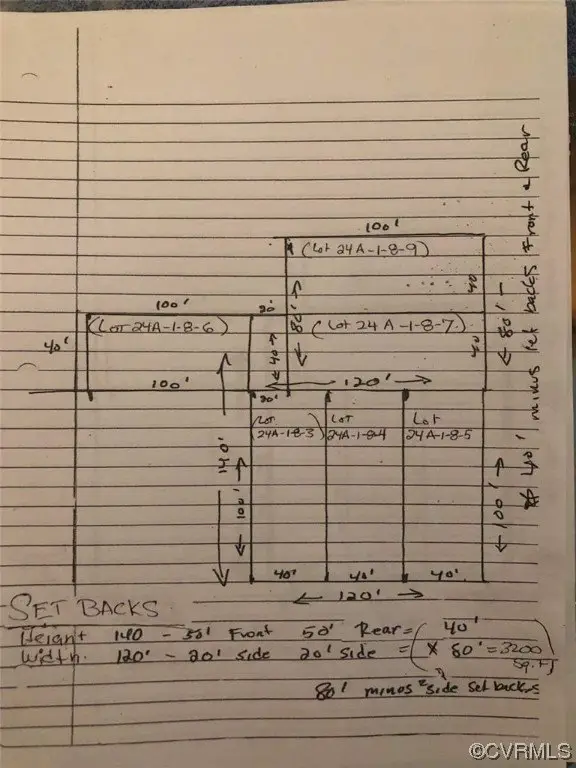 100'
(Lot 24A-1-8-9)
40
100'
20'
(Lot 24A-1-8-6)
80'
(Lot 24A-1-8-7)
80'
40'
40
40
100'
120'
20'
(Lot 24A-1-8-3)
Lot 24A-1-8-4
Lot 24A-1-8-5
140'
100'
100'
40'
40'
40'
120'
minus set backs Front & Rear
40'
SET BACKS
Height 140 - 50' Front 50' Rear = 40'
Width. 120' - 20' side 20' side = X 80' = 3200 Sq. Ft
80' minus 2 side set backs
©CVRMLS